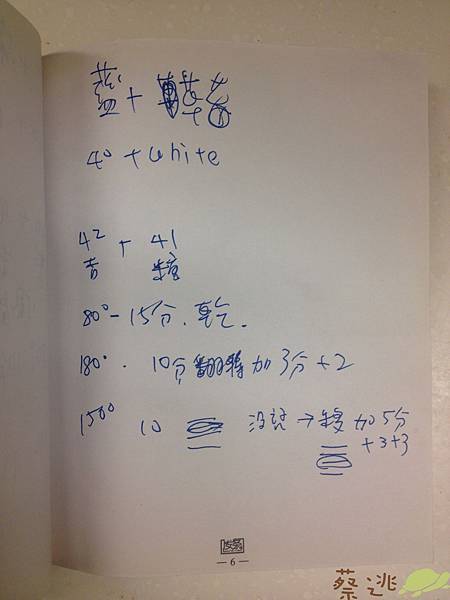 藍+
40 + White
42 + 41
杏 糖
80°-15分.乾.
180°. 10分翻轉加3分+2
150° 10 沒熟→再加5分
+3+3
— 6 —
蔡逃